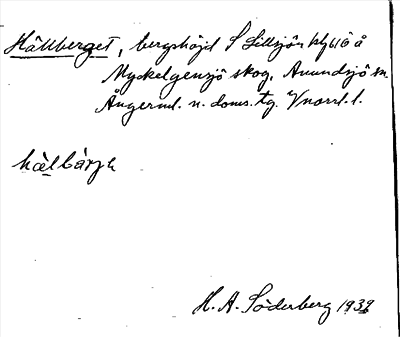 Hällberget, bergshöjd S Lillsjön
Myckelgensjö skog, Anundsjö sn
Ångerml. n. doms. tg. Vnorrl. l.
hälbärjə
H. A. Söderberg 1939